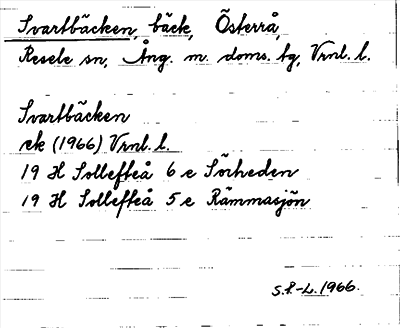 Svartbäcken, bäck, Österrå,
Resele sn, Ång. m. doms. tg, Vrnl. l.
Svartbäcken
ek (1966) Vrnl. l.
19 H Sollefteå 6 e Sörheden
19 H Sollefteå 5 e Rämmasjön
S.F.-L. 1966.